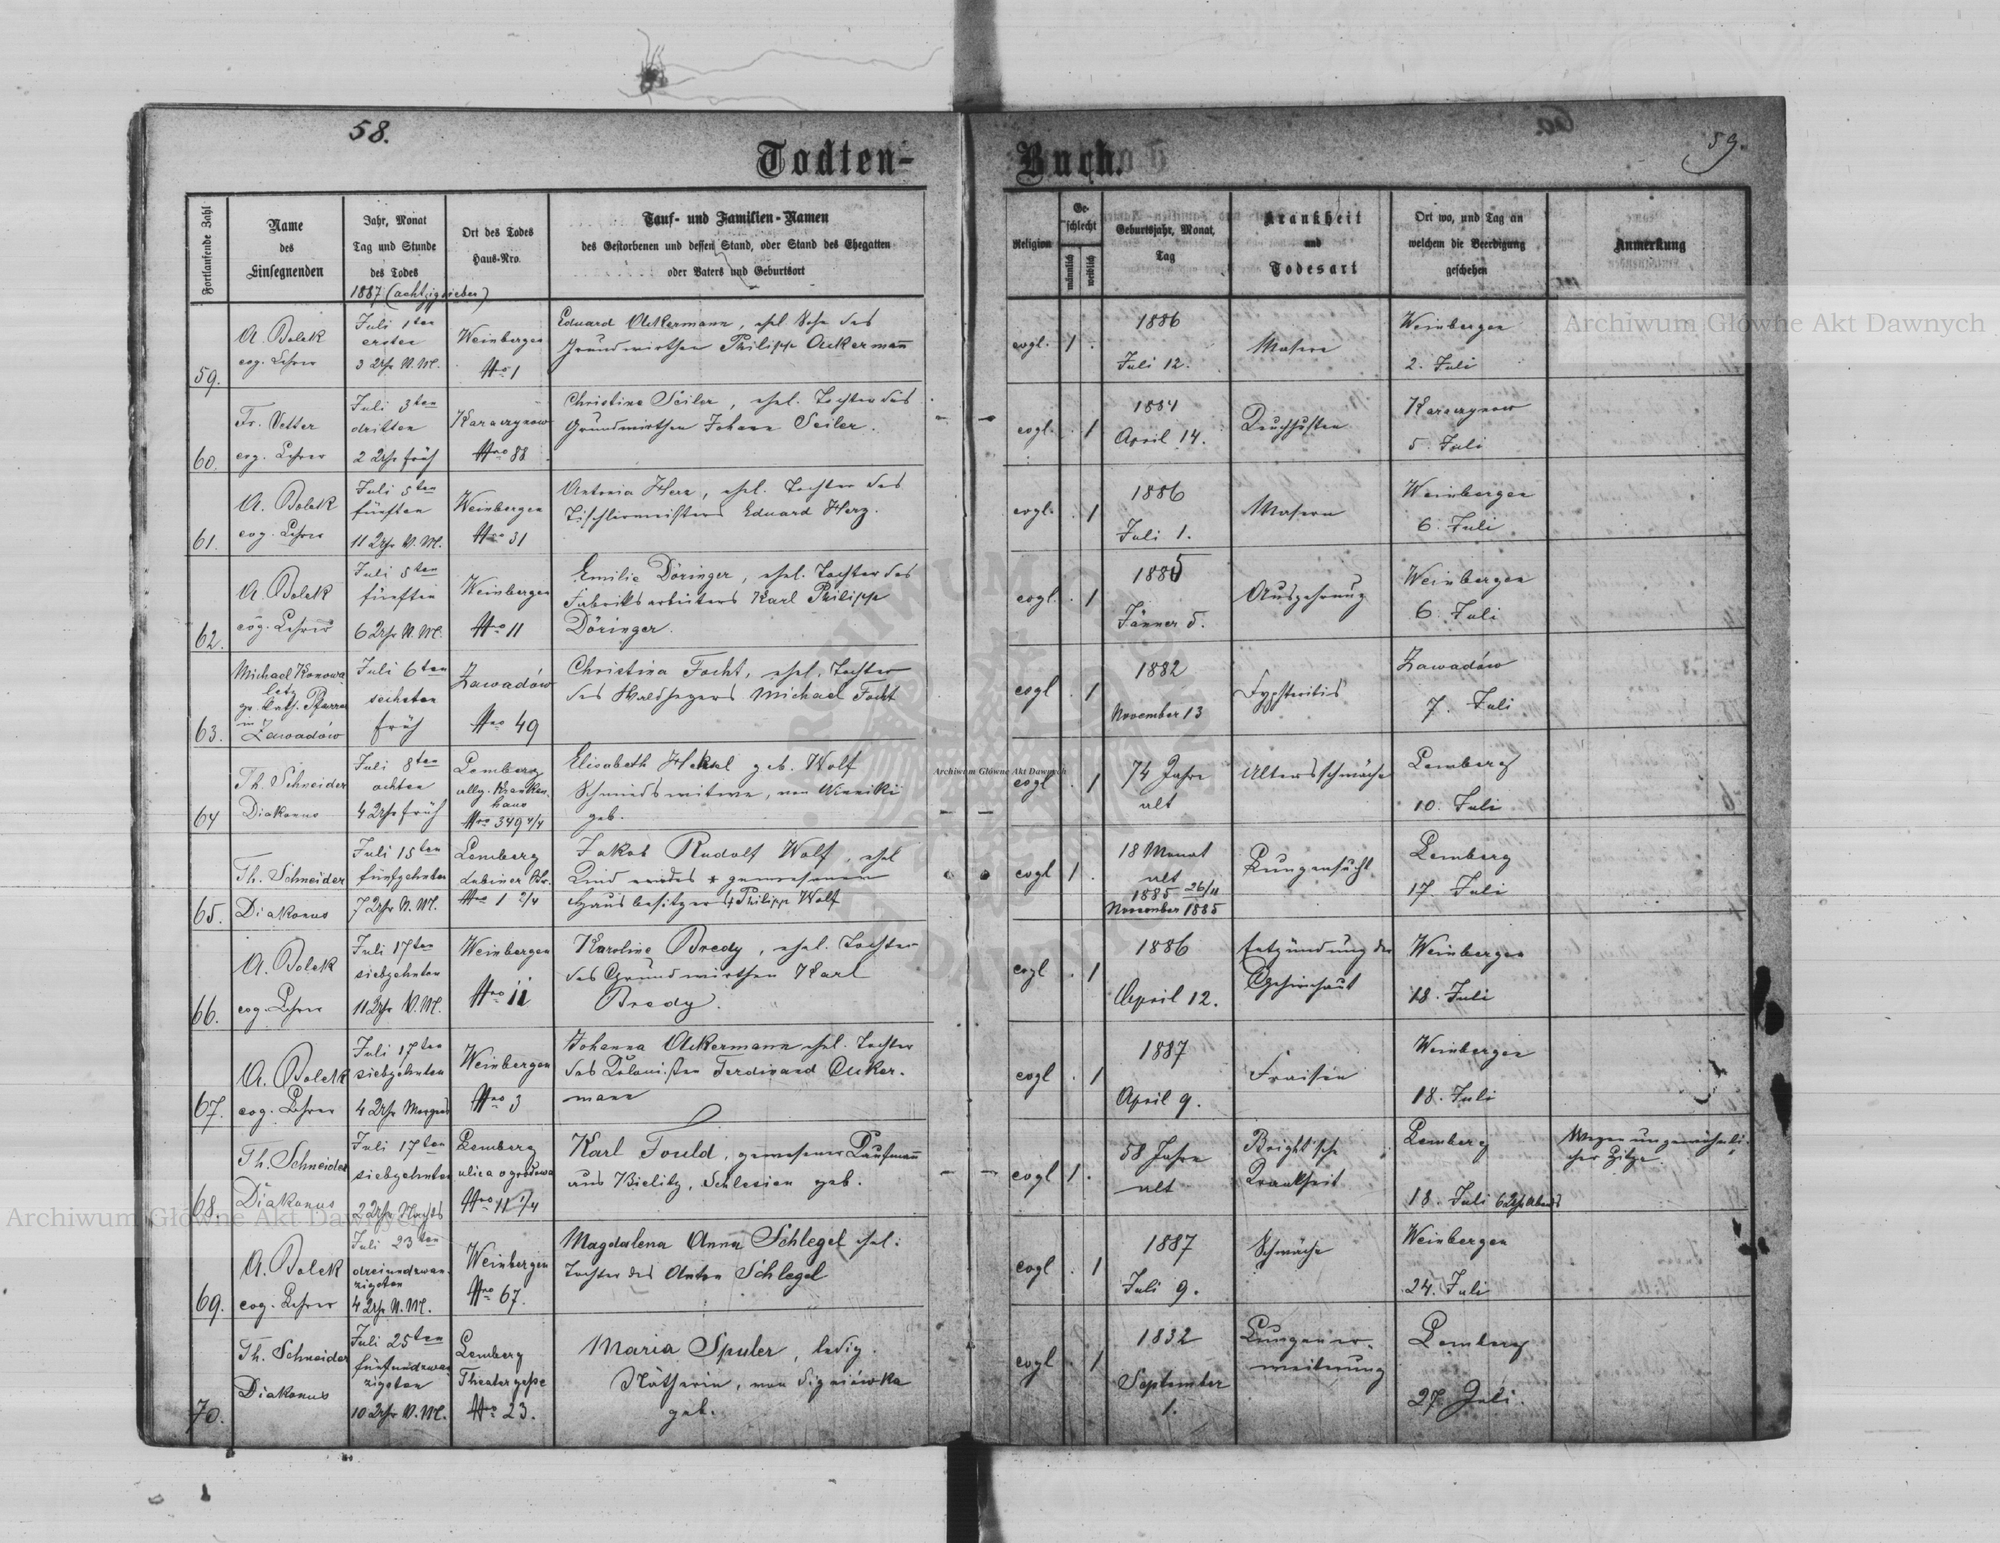 58.
59.
Todten-
Buch.
Fortlaufende Zahl
Name
des
Einsegnenden
Jahr, Monat
Tag und Stunde
des Todes
1887 (achtzigsieben)
Ort des Todes
Haus-Nro.
Tauf- und Familien-Namen
des Gestorbenen und dessen Stand, oder Stand des Ehegatten
oder Vaters und Geburtsort
Religion
Ge-
schlecht
männlich
weiblich
Geburtsjahr, Monat,
Tag
Krankheit
und
Todesart
Ort wo, und Tag an
welchem die Beerdigung
geschehen
Anmerkung
59.
A. Bolek
evg. Lehrer
Juli 1ten
ersten
3 Uhr N. M.
Weinbergen
Nro 1
Eduard Ackermann, ehel. Sohn des
Grundwirthen Philipp Ackermann
evgl.
1
1886
Juli 12.
Masern
Weinbergen
2. Juli
60.
Fr. Vetter
evg. Lehrer
Juli 3ten
dritten
2 Uhr früh
Nro 88
Christine Seiler, ehel. Tochter des
Grundwirthen Johann Seiler.
evgl.
1
1884
April 14.
Keuchhusten
5. Juli
61.
A. Bolek
evg. Lehrer
Juli 5ten
fünften
11 Uhr V. M.
Weinbergen
Nro 31
Antonia Herz, ehel. Tochter des
Tischlermeisters Eduard Herz.
evgl.
1
1886
Juli 1.
Masern
Weinbergen
6. Juli
62.
A. Bolek
evg. Lehrer
Juli 5ten
fünften
6 Uhr N. M.
Weinbergen
Nro 11
Emilie Döringer, ehel. Tochter des
Fabriksarbeiters Karl Philipp
Döringer.
evgl.
1
1885
Jänner 5.
Auszehrung
Weinbergen
6. Juli
63.
Michael Konowa-
letz
gr. kath. Pfarrer
in
Zawadów
Juli 6ten
sechsten
früh
Zawadów
Nro 49
Christina Focht, ehel. Tochter
des Waldhegers Michael Focht
evgl
1
1882
November 13
Zawadów
7. Juli
64
Th. Schneider
Diakonus
Juli 8ten
achten
4 Uhr früh
Lemberg
allg. Kranken-
haus
Nro 349 4/4
Elisabeth Hekel geb. Wolf
Schmiedswitwe, von Winniki
geb.
evgl
1
74 Jahre
alt
Altersschwäche
Lemberg
10. Juli
65.
Th. Schneider
Diakonus
Juli 15ten
fünfzehnten
7 Uhr N. M.
Lemberg
Nro 1 2/4
Jakob Rudolf Wolf, ehel
Kind des gewesenen
Hausbesitzers Philipp Wolf
evgl
1
18 Monat
alt
1885 26/11
November 1885
Lungensucht
Lemberg
17 Juli
66.
A. Bolek
evg. Lehrer
Juli 17ten
siebzehnten
11 Uhr V. M.
Weinbergen
Nro 11
Karoline Bredy, ehel. Tochter
des Grundwirthen Karl
Bredy.
evgl
1
1886
April 12.
Entzündung der
Gehirnhaut
Weinbergen
18. Juli
67.
A. Bolek
evg. Lehrer
Juli 17ten
siebzehnten
4 Uhr Morgens
Weinbergen
Nro 3
Johanna Ackermann ehel. Tochter
des Kolonisten Ferdinand Acker-
mann
evgl
1
1887
April 9.
Fraisen
Weinbergen
18. Juli
68.
Th. Schneider
Diakonus
Juli 17ten
siebzehnten
2 Uhr Nachts
Lemberg
ulica ogrodowa
Nro 11 1/4
Karl Fould, gewesener Kaufmann
aus Bielitz, Schlesien geb.
evgl
1
58 Jahre
alt
Bright'sche
Krankheit
Lemberg
18. Juli 6 Uhr Abends
Wegen ungewöhnli-
cher Hitze.
69.
A. Bolek
evg. Lehrer
Juli 23ten
dreiundzwan-
zigsten
4 Uhr N. M.
Weinbergen
Nro 67.
Magdalena Anna Schlegel ehel.
Tochter des Anton Schlegel
evgl
1
1887
Juli 9.
Schwäche
Weinbergen
24. Juli
70.
Th. Schneider
Diakonus
Juli 25ten
fünfundzwan-
zigsten
10 Uhr V. M.
Lemberg
Theatergasse
Nro 23.
Maria Spuler, ledig.
Nätherin, von
geb.
evgl
1
1832
September
1.
Lungener-
weiterung
Lemberg
27. Juli.
Archiwum Główne Akt Dawnych
Archiwum Główne Akt Dawnych
Archiwum Główne Akt Dawnych